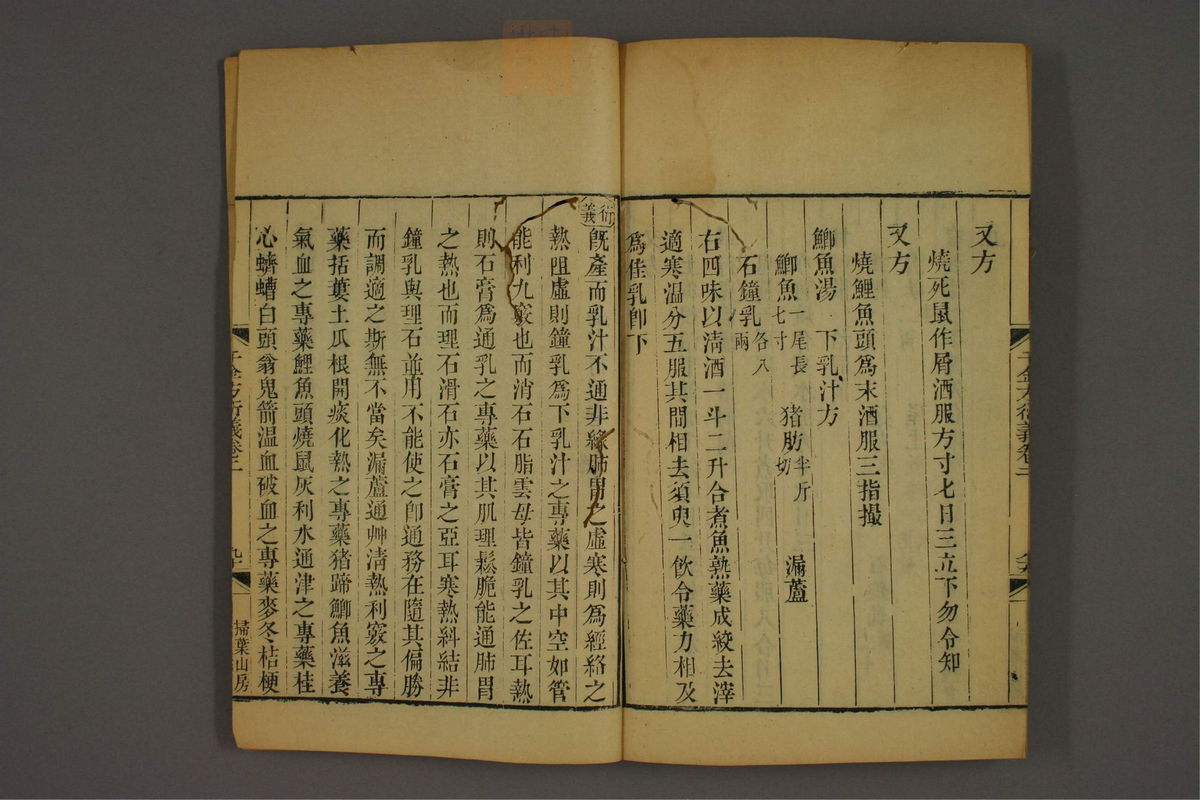 又方
燒死鼠作屑酒服方寸七日三立下勿令知
又方
燒鯉魚頭爲末酒服三指撮
鯽魚湯 下乳汁方
鯽魚一尾長七寸 猪肪半斤切 漏蘆
石鐘乳各八兩
右四味以淸酒一斗二升合煮魚熟藥成絞去滓
適寒温分五服其間相去須臾一飲令藥力相及
爲佳乳卽下
衍義
旣產而乳汁不通非緣肺胃之虛寒則爲經絡之
熱阻虛則鐘乳爲下乳汁之專藥以其中空如管
能利九竅也而消石石脂雲母皆鐘乳之佐耳熱
則石膏爲通乳之專藥以其肌理鬆脆能通肺胃
之熱也而理石滑石亦石膏之亞耳寒熱糾結非
鐘乳與理石並用不能使之卽通務在隨其偏勝
而調適之斯無不當矣漏蘆通艸淸熱利竅之專
藥括蔞土瓜根開痰化熱之專藥猪蹄鯽魚滋養
氣血之專藥鯉魚頭燒鼠灰利水通津之專藥桂
心蠐螬白頭翁鬼箭温血破血之專藥麥冬桔梗
千金方衍義卷二
掃葉山房